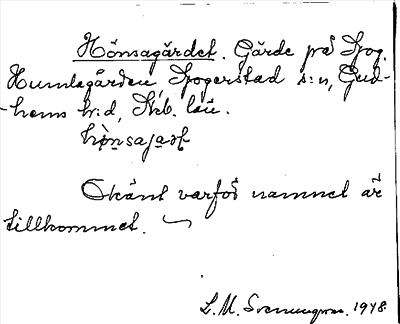 Hönsagärdet. Gärde på Ljog.
Humlagården, Ljogerstad s:n, Gud-
-hems h:d, Skb. län.
hö̀nsajaɹt
Okänt varför namnet är
tillkommet.
L. M. Svenungsson. 1948.